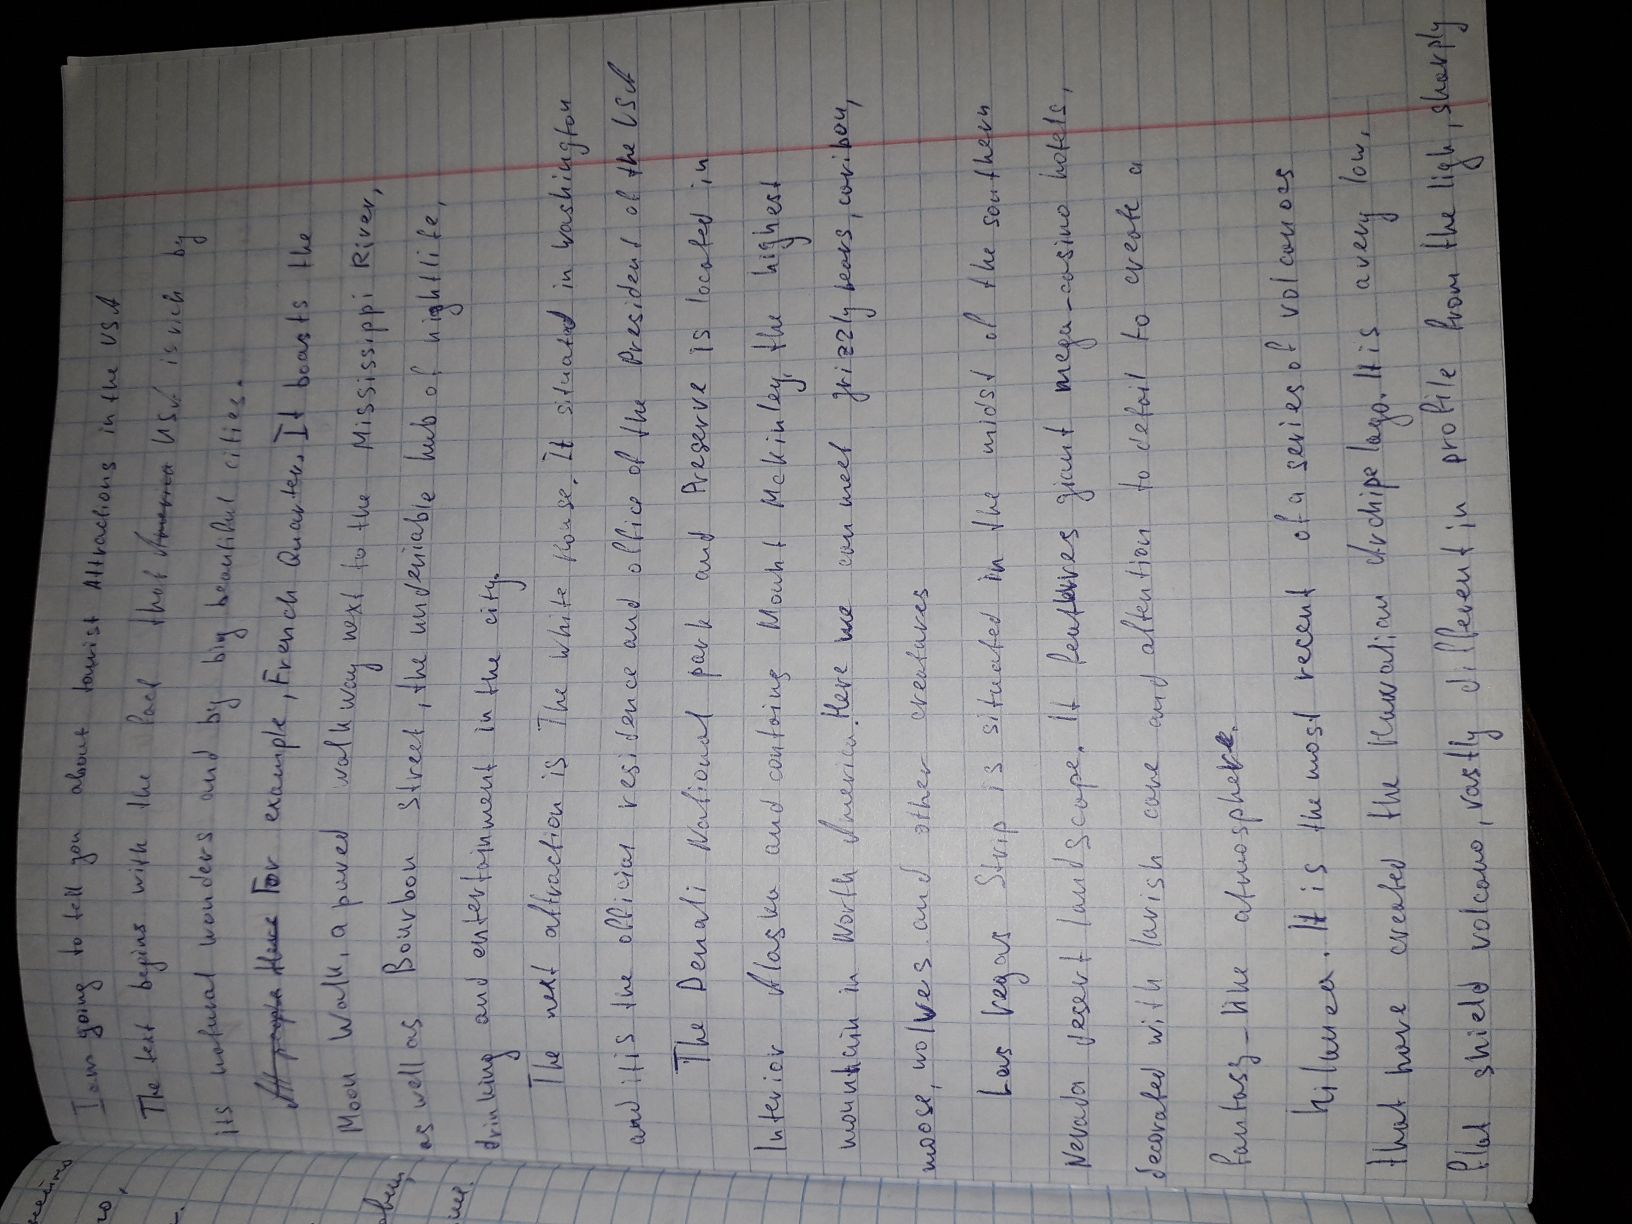 I am going to tell you about tourist Attractions in the USA
The text begins with the fact that America USA is rich by
its natural wonders and by big beautiful cities.
For example, French Quarter. It boasts the
Moon Walk, a paved walkway next to the Mississippi River,
as well as Bourbon Street, the undeniable hub of nightlife,
drinking and entertainment in the city.
The next attraction is The White House. It situated in Washington
and it is the official residence and office of the President of the USA
The Denali National park and Preserve is located in
Interior Alaska and contains Mount Mckinley, the highest
mountain in North America. Here we can meet grizzly bears, caribou,
moose, wolves and other creatures
Las Vegas Strip is situated in the midst of the southern
Nevada desert landscape. It features giant mega-casino hotels,
decorated with lavish care and attention to detail to create a
fantasy-like atmosphere.
Kilauea. It is the most recent of a series of volcanoes
that have created the Hawaiian Archipelago. It is a very low,
flat shield volcano, vastly different in profile from the high, sharply